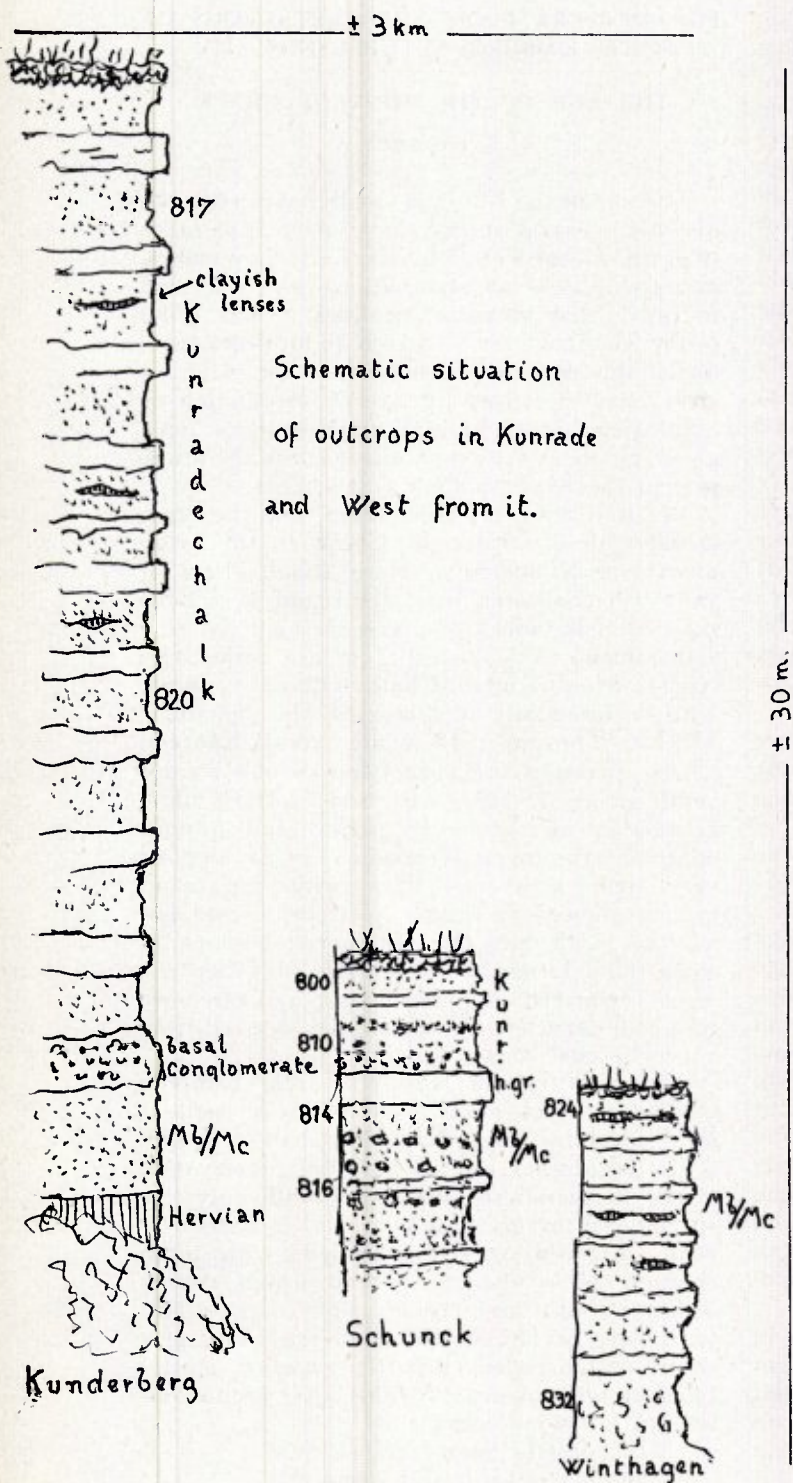 ± 3 km
817
clayish
lenses
Kunradechalk
Schematic situation
of outcrops in Kunrade
and West from it.
820
± 30 m.
basal
conglomerate
Mb/Mc
Hervian
Kunderberg
800
Kunr.
810
h.gr.
814
Mb/Mc
816
Schunck
824
Mb/Mc
832
Winthagen